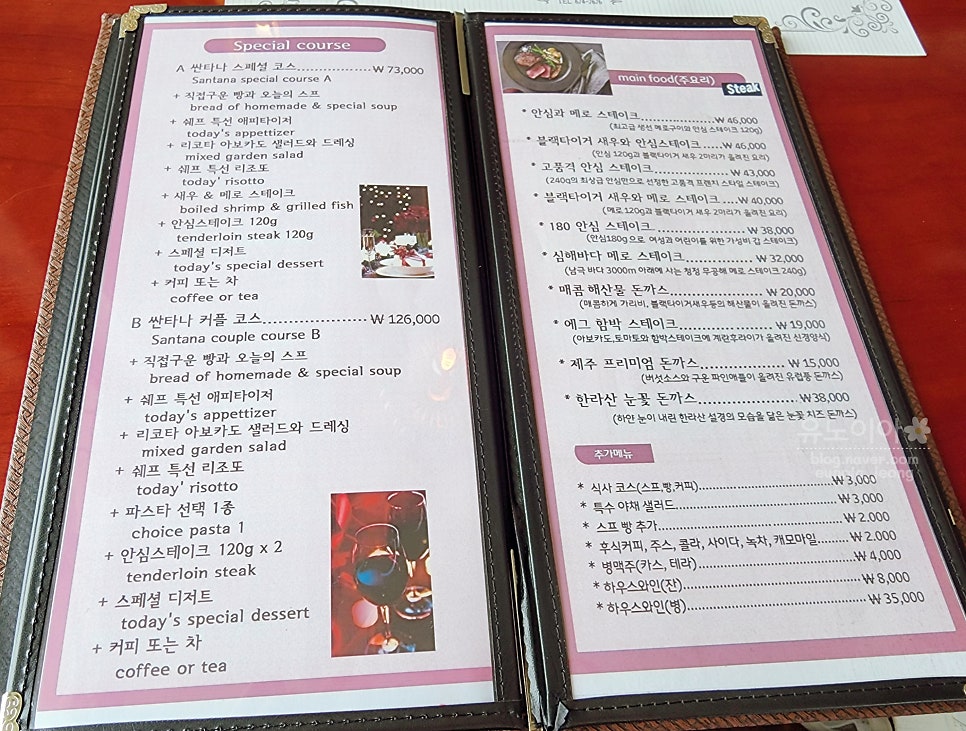 TEL 878-7878
Special course
A 싼타나 스페셜 코스......................₩ 73,000
Santana special course A
+ 직접구운 빵과 오늘의 스프
bread of homemade & special soup
+ 쉐프 특선 애피타이저
today's appettizer
+ 리코타 아보카도 샐러드와 드레싱
mixed garden salad
+ 쉐프 특선 리조또
today' risotto
+ 새우 & 메로 스테이크
boiled shrimp & grilled fish
+ 안심스테이크 120g
tenderloin steak 120g
+ 스페셜 디저트
today's special dessert
+ 커피 또는 차
coffee or tea
B 싼타나 커플 코스......................₩ 126,000
Santana couple course B
+ 직접구운 빵과 오늘의 스프
bread of homemade & special soup
+ 쉐프 특선 애피타이저
today's appetizer
+ 리코타 아보카도 샐러드와 드레싱
mixed garden salad
+ 쉐프 특선 리조또
today' risotto
+ 파스타 선택 1종
choice pasta 1
+ 안심스테이크 120g x 2
tenderloin steak
+ 스페셜 디저트
today's special dessert
+ 커피 또는 차
coffee or tea
main food(주요리)
Steak
* 안심과 메로 스테이크......................₩ 46,000
(최고급 생선 메로구이와 안심 스테이크 120g)
* 블랙타이거 새우와 안심스테이크.....₩ 46,000
(안심 120g과 블랙타이거 새우 2마리가 올려진 요리)
* 고품격 안심 스테이크......................₩ 43,000
(240g의 최상급 안심만으로 선정한 고품격 프렌치 스타일 스테이크)
* 블랙타이거 새우와 메로 스테이크...₩ 40,000
(메로 120g과 블랙타이거 새우 2마리가 올려진 요리)
* 180 안심 스테이크......................₩ 38,000
(안심180g 으로 여성과 어린이를 위한 가성비 갑 스테이크)
* 심해바다 메로 스테이크................₩ 32,000
(남극 바다 3000m 아래에 사는 청정 무공해 메로 스테이크 240g)
* 매콤 해산물 돈까스......................₩ 20,000
(매콤하게 가리비, 블랙타이거새우등의 해산물이 올려진 돈까스)
* 에그 함박 스테이크......................₩ 19,000
(아보카도,토마토와 함박스테이크에 계란후라이가 올려진 신경양식)
* 제주 프리미엄 돈까스...................₩ 15,000
(버섯소스와 구운 파인애플이 올려진 유럽풍 돈까스)
* 한라산 눈꽃 돈까스......................₩38,000
(하얀 눈이 내린 한라산 설경의 모습을 닮은 눈꽃 치즈 돈까스)
유노이아
blog.naver.com
추가메뉴
* 식사 코스(스프,빵,커피)......................₩ 3,000
* 특수 야채 샐러드......................₩ 3,000
* 스프 빵 추가......................₩ 2.000
* 후식커피, 주스, 콜라, 사이다, 녹차, 캐모마일........₩ 2.000
* 병맥주(카스, 테라)......................₩ 4,000
* 하우스와인(잔)......................₩ 8,000
* 하우스와인(병)......................₩ 35,000